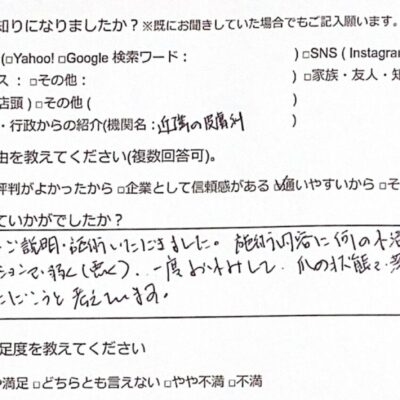 知りになりましたか？※既にお聞きしていた場合でもご記入願います。
(□Yahoo! □Google 検索ワード： ) □SNS ( Instagram
ス ： □その他： ) □家族・友人・知
店頭 ) □その他 ( )
・行政からの紹介(機関名：近隣の皮膚科 )
由を教えてください(複数回答可)。
評判がよかったから □企業として信頼感がある ☑通いやすいから □そ
ていかがでしたか？
ご説明・施術いただきました。施術内容に何の不
一度お休みして、爪の状態
こうと考えています。
足度を教えてください
や満足 □どちらとも言えない □やや不満 □不満